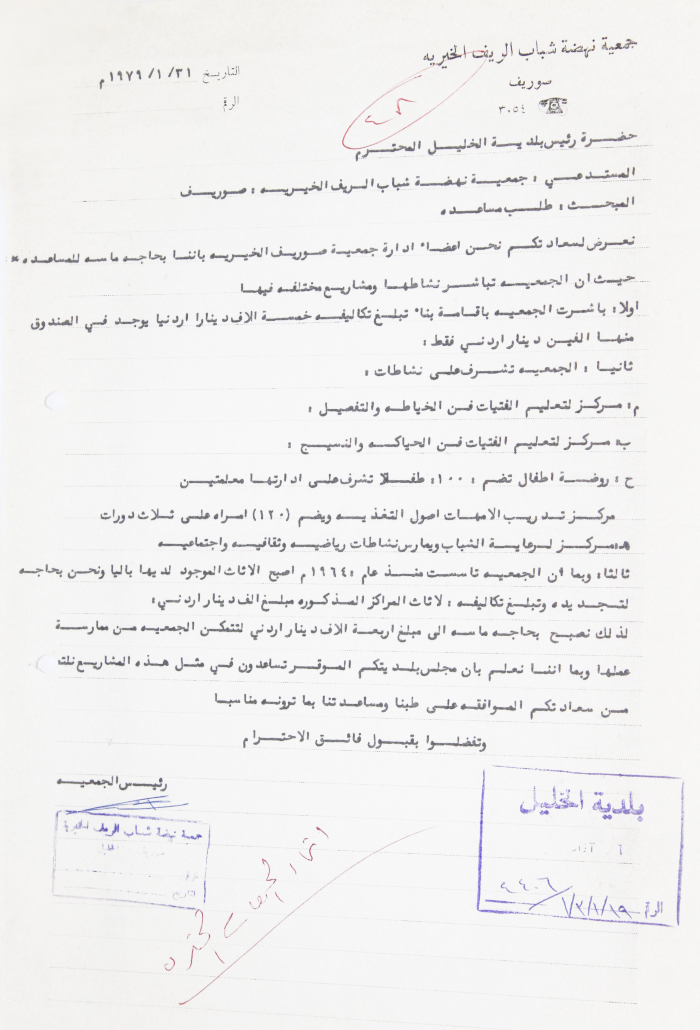 جمعية نهضة شباب الريف الخيريه
صوريف
٣٠٥٤
التاريخ ٣١/ ١/ ١٩٧٩م
الرقم
حضرة رئيس بلدية الخليل المحترم
المستدعي : جمعية نهضة شباب الريف الخيريه : صوريف
المبحث : طلب مساعده
نعرض لسعادتكم نحن اعضاء ادارة جمعية صوريف الخيريه باننا بحاجه ماسه للمساعده *
حيث ان الجمعيه تباشر نشاطها ومشاريع مختلفه فيها
اولا: باشرت الجمعيه باقامة بناء تبلغ تكاليفه خمسة الاف دينارا اردنيا يوجد في الصندوق
منها الفين دينار اردني فقط :
ثانيا : الجمعيه تشرف على نشاطات :
م: مركز لتعليم الفتيات فن الخياطه والتفصيل :
ب: مركز لتعليم الفتيات فن الحياكه والنسيج :
ح : روضة اطفال تضم : ١٠٠: طفلا تشرف على ادارتها معلمتين
مركز تدريب الامهات اصول التغذيه ويضم (١٢٠) امراه على ثلاث دورات
هـ: مركز لرعاية الشباب ويمارس نشاطات رياضيه وثقافيه واجتماعيه
ثالثا: وبما ان الجمعيه تاسست منذ عام :١٩٦٤م اصبح الاثاث الموجود لديها باليا ونحن بحاجه
لتجديده وتبلغ تكاليفه : لاثاث المراكز المذكوره مبلغ الف دينار اردني:
لذلك نصبح بحاجه ماسه الى مبلغ اربعة الاف دينار اردني لتتمكن الجمعيه من ممارسة
عملها وبما اننا نعلم بان مجلس بلديتكم الموقر تساعدون في مثل هذه المشاريع نلت
من سعادتكم الموافقه على طبنا ومساعدتنا بما ترونه مناسبا
وتفضلوا بقبول فائق الاحترام
رئيس الجمعيه
جمعية نهضة شباب الريف الخيرية
التاريخ
بلدية الخليل
آذار
الرقم ١٩/٨/٣/١
٤٤٠٦